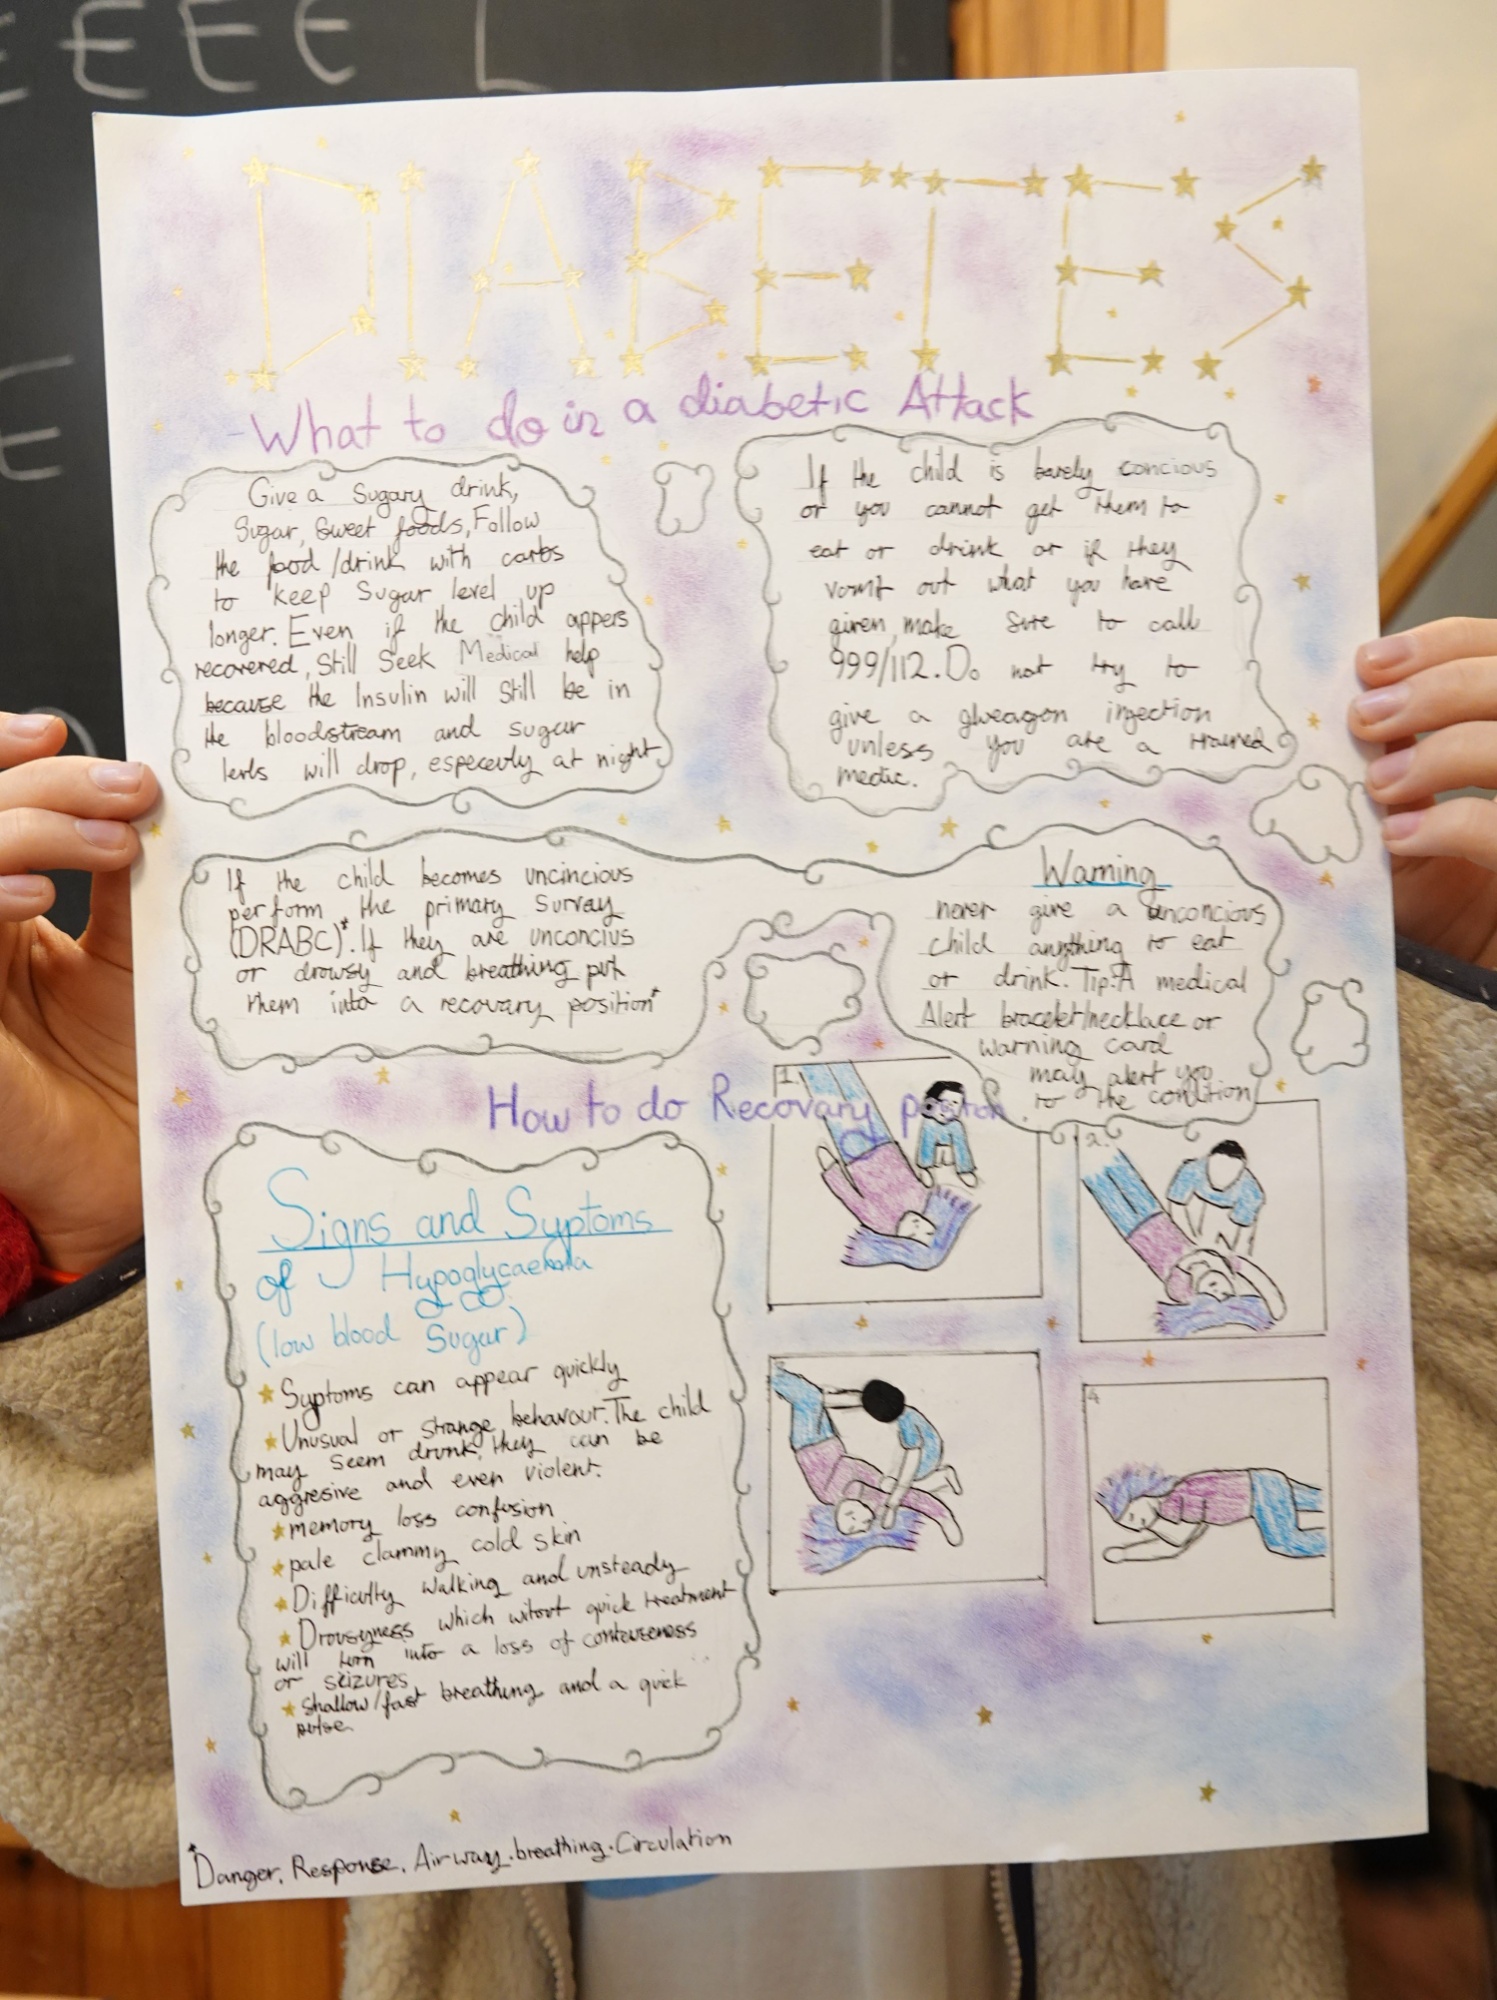 EEEE L
E
E
DIABETES
-What to do in a diabetic Attack
Give a Sugary drink,
Sugar, Sweet foods, Follow
the food/drink with carbs
to keep Sugar level up
longer. Even if the child appers
recovered, Still Seek Medical help
because the Insulin will Still be in
the bloodstream and sugar
levls will drop, especevly at night
If the child is barely concious
or you cannot get them to
eat or drink or if they
vomit out what you have
given, make Sure to call
999/112. Do not try to
give a glucagon injection
unless you are a trained
medic.
If the child becomes uncincious
perform the primary Survay
(DRABC)*. If they are unconcius
or drowsy and breathing put
them into a recovary position*
Warning
never give a unconcious
child anything to eat
or drink. Tip: A medical
Alert bracelet/necklace or
warning card
may alert you
to the condition
How to do Recovary position
1.
2.
4
Signs and Syptoms
of Hypoglycaemia
(low blood Sugar)
Syptoms can appear quickly
Unusual or strange behavour. The child
may Seem drunk, they can be
aggresive and even violent.
memory loss confusion
pale clammy cold skin
Difficulty walking and unsteady
Drousyness which witout quick treatment
will turn into a loss of
or seizures
Shallow/fast breathing and a quick
pulse.
*Danger. Response. Airway. breathing. Circulation